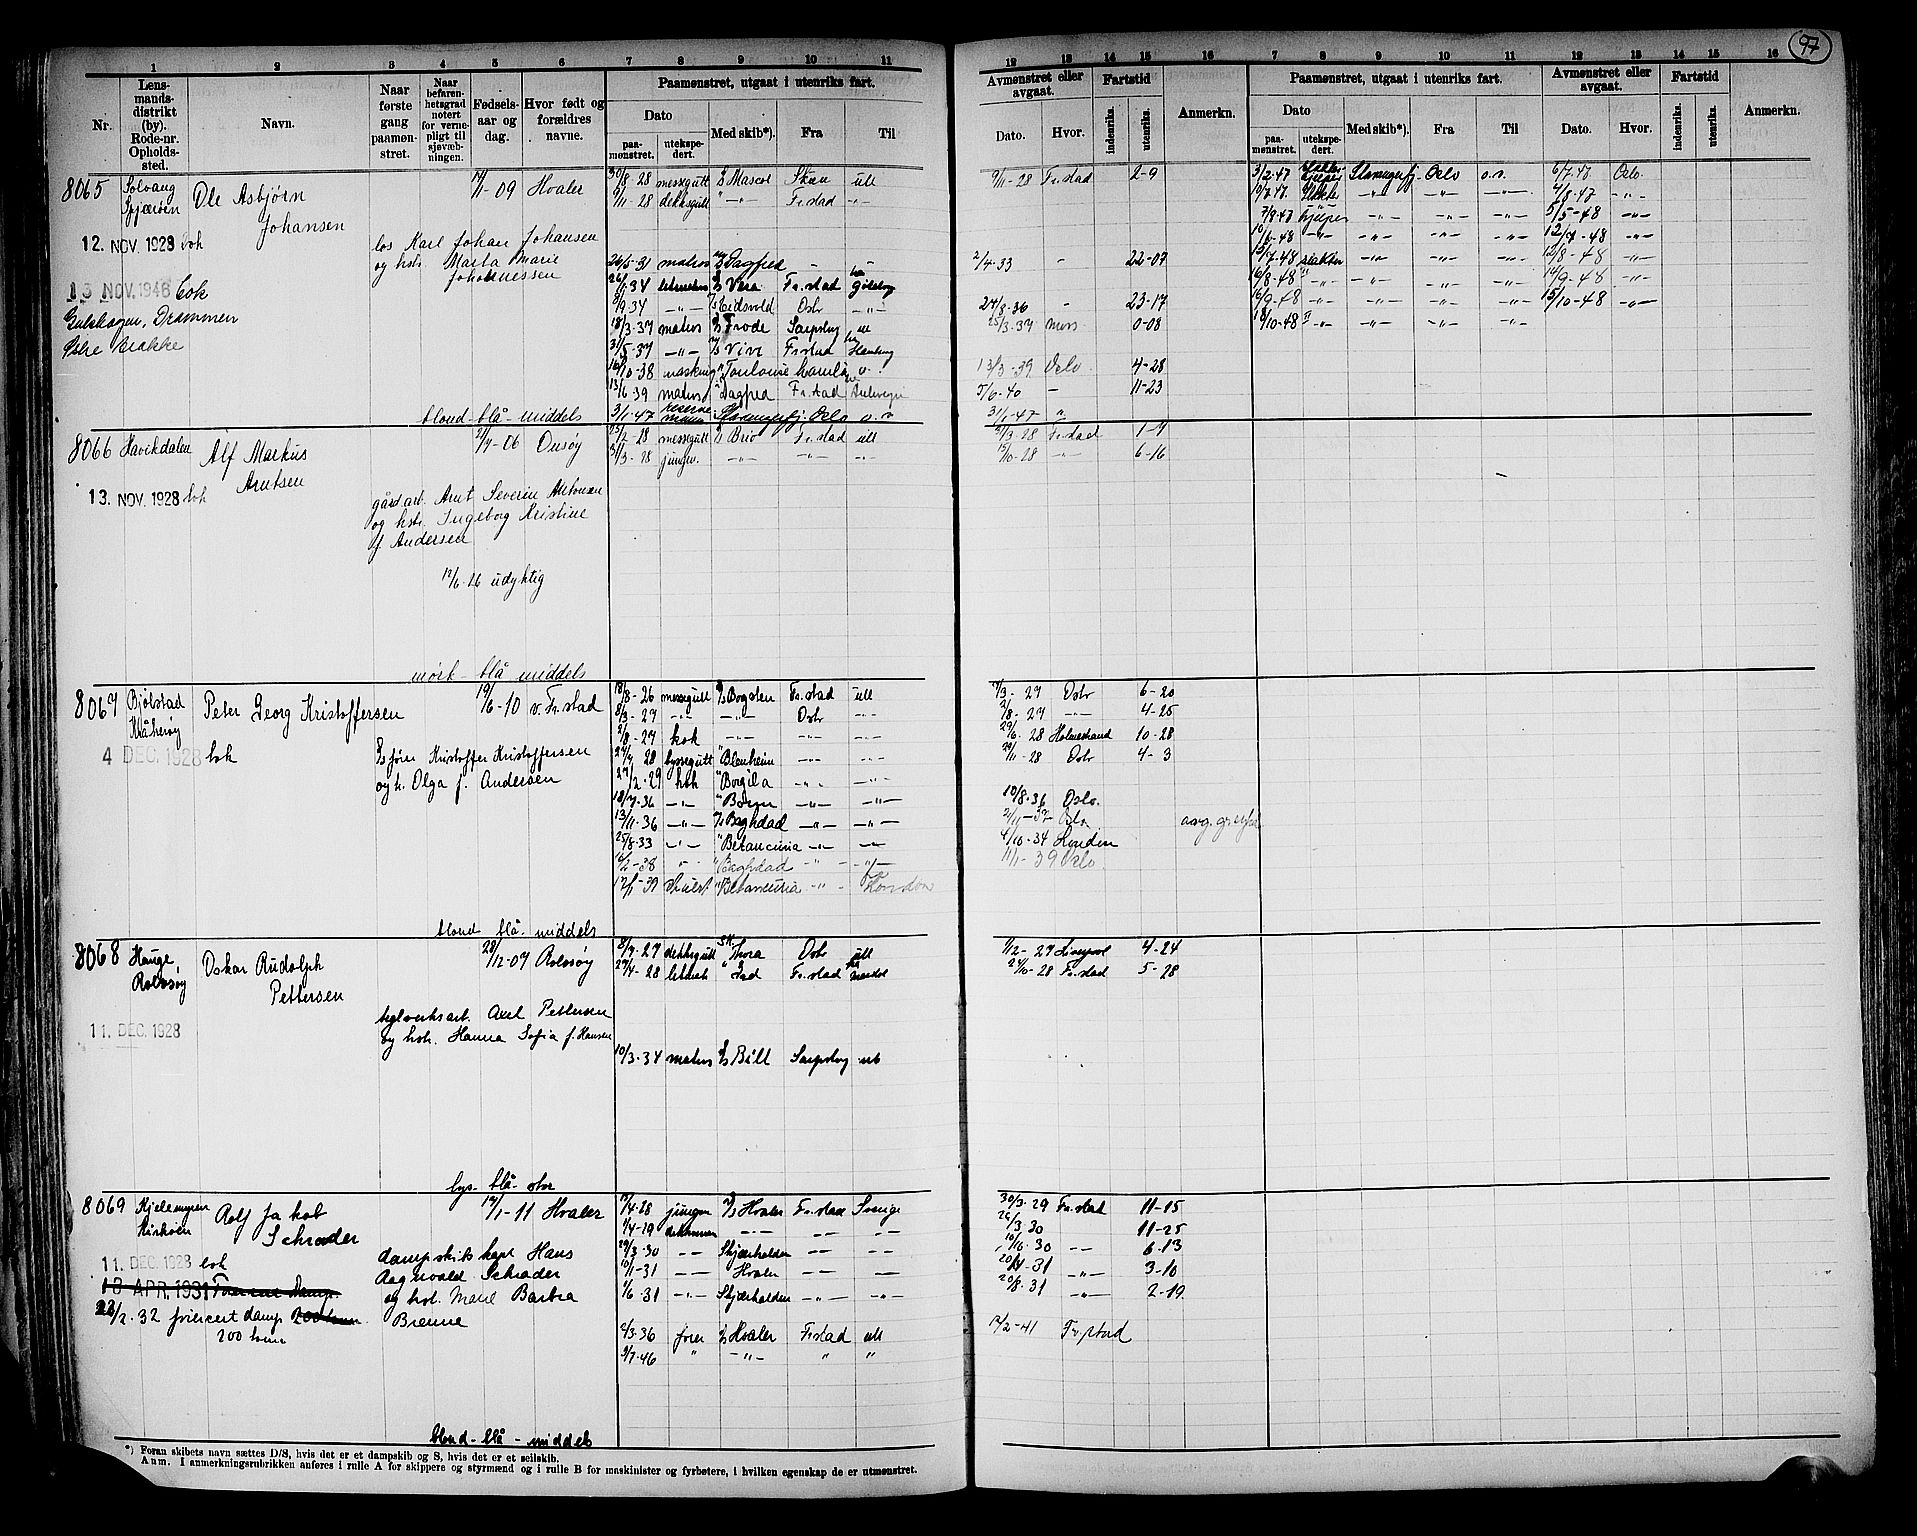 97
1 2 3 4 5 6 7 8 9 10 11
Nr.
Lens-
mands-
distrikt
(by).
Rode-nr.
Opholds-
sted.
Navn.
Naar
første
gang
paamøn-
stret.
Naar
befaren-
hetsgrad
notert
for verne-
pligt til
sjøvæb-
ningen.
Fødsels-
aar og
dag.
Hvor født og
forældres
navne.
Paamønstret, utgaat i utenriks fart.
Dato
paa-
mønstret.
utekspe-
dert.
Med skib*).
Fra
Til
12 13 14 15 16 7 8 9 10 11 12 13 14 15 16
Avmønstret eller
avgaat.
Dato. Hvor.
Fartstid
indenriks. utenriks.
Anmerkn.
Paamønstret, utgaat i utenriks fart.
Dato
paa-
mønstret.
utekspe-
dert.
Med skib*). Fra Til
Avmønstret eller
avgaat.
Dato. Hvor.
Fartstid
indenriks. utenriks.
Anmerkn.
8065 Solvang
Spjærøen
Ole Asbjørn
Johansen
1-09 Hvaler
12. NOV. 1928 bok
los Karl Johan Johansen
og hstr. Marta Marie
Johannessen
13 NOV. 1946 bok
Gulskogen, Drammen
Østre Brakke
blond - blå - middels
30/8-28 messegutt Mascot Skien utl
9/11-28 dekksgutt -"- Fr.stad -"-
26/5-31 matros Dagfred
26/1-34 lettmatros Vera Fr.stad Gøteborg
9-34 -"- Eidsvold Oslo -"-
18/3-37 matros Frode Sarpsborg utl
31/5-37 -"- Vivi Fr.stad Hamburg
10-38 Toulouse
13/6-39 matros Dagfred Fr.stad Antwerpen
3/1-47 reserve
mann Stavangerfj. Oslo o.r
9/11-28 Fr.stad 2-9
2/4-33 " 22-07
24/8-36 " 23-17
25/3-37 Moss 0-08
13/3-39 Oslo 4-28
5/6-40 - 11-23
31/1-47 "
3/2-47 Stavangerfj. Oslo o.r. 6/7-47 Oslo
9/7-47 slakter -"- -"- -"- 4/8-47 -"-
7/8-47 hjelper -"- -"- -"- 5/5-48 -"-
10/6-48 -"- -"- -"- -"- 12/7-48 -"-
15/7-48 slakter -"- -"- -"- 12/8-48 -"-
16/8-48 " -"- -"- -"- 14/9-48 -"-
16/9-48 " -"- -"- -"- 15/10-48 -"-
18/10-48 " -"- -"- -"-
8066 Havikdalen
Alf Markus
Arntsen
2/7-06 Onsøy
13. NOV. 1928 bok
gårdarb. Arnt Severin Antonsen
og hstr. Ingeborg Kristine
f. Andersen
12/6-26 udyktig
mørk - blå - middels
25/2-28 messegutt Brio Fr.stad utl
31/3-28 jungm. -"- -"- -"-
31/3-28 Fr.stad 1-7
15/10-28 -"- 6-16
8067 Bjølstad
Kråkerøy
Peter Georg Kristoffersen
19/6-10 v. Fr.stad
4 DEC. 1928 bok
fører Kristoffer Kristoffersen
og h. Olga f. Andersen
blond blå - middels
18/8-26 messegutt Bogsten Fr.stad utl
8/3-27 -"- -"- Oslo -"-
2/8-27 kok -"- -"- -"-
28 byssegutt Blenheim -"- -"-
27/2-29 kok Borgila -"- -"-
18/7-36 -"- -"- -"-
13/11-36 -"- Baghdad -"- -"-
25/8-33 -"- Betancuria -"- -"-
2-38 -"- Baghdad -"- -"-
12/1-39 Betancuria -"- London
3-27 Oslo 6-20
2/8-27 -"- 4-25
29/6-28 Holmestrand 10-28
11-28 Oslo 4-3
10/8-36 Oslo.
2/11-37 Oslo
4/10-34 London
11/1-39 Oslo
8068 Hauge
Rolvsøy
Oskar Rudolph
Pettersen
28/12-07 Rolvsøy
11. DEC. 1928
teglverksarb. Axel Pettersen
og hstr. Hanna Sofia f. Hansen
lys - blå - stor
8/7-27 dekksgutt Thora Oslo utl
27/4-28 lettmatr. Fr.stad
10/3-34 matros Bill Sarpsborg utl
1/12-27 Liverpool 4-24
24/10-28 Fr.stad 5-28
8069 Kjelemyren
Kirkøen
Rolf Jakob
Schrøder
1-11 Hvaler
11. DEC. 1928 bok
18 APR. 1931
23/2-32 fører cert damp 200 tonn
200 tonn
dampskibskapt Hans
Ragnvald Schrøder
og hstr. Marie Barbra
Brenne
blond - blå - middels
4-28 jungm Hvaler Fr.stad Sverige
4-29 -"- -"- -"-
29/3-30 -"- Skjærhalden -"- -"-
10/1-31 -"- Hvaler -"- -"-
6-31 -"- Skjærhalden -"- -"-
2/3-36 fører Hvaler Fr.stad utl
9/7-46 " -"- " "
30/3-29 Fr.stad 11-15
26/3-30 11-25
30 -"- 6-13
31 -"- 3-10
20/8-31 -"- 2-19
12/2-41 Fr.stad
*) Foran skibets navn sættes D/S, hvis det er et dampskib og S, hvis det er et seilskib.
Anm. I anmerkningsrubrikken anføres i rulle A for skippere og styrmænd og i rulle B for maskinister og fyrbøtere, i hvilken egenskap de er utmønstret.